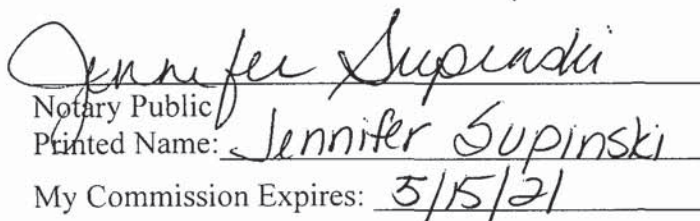 Jennifer Supinski
Notary Public
Printed Name: Jennifer Supinski
My Commission Expires: 5/15/21